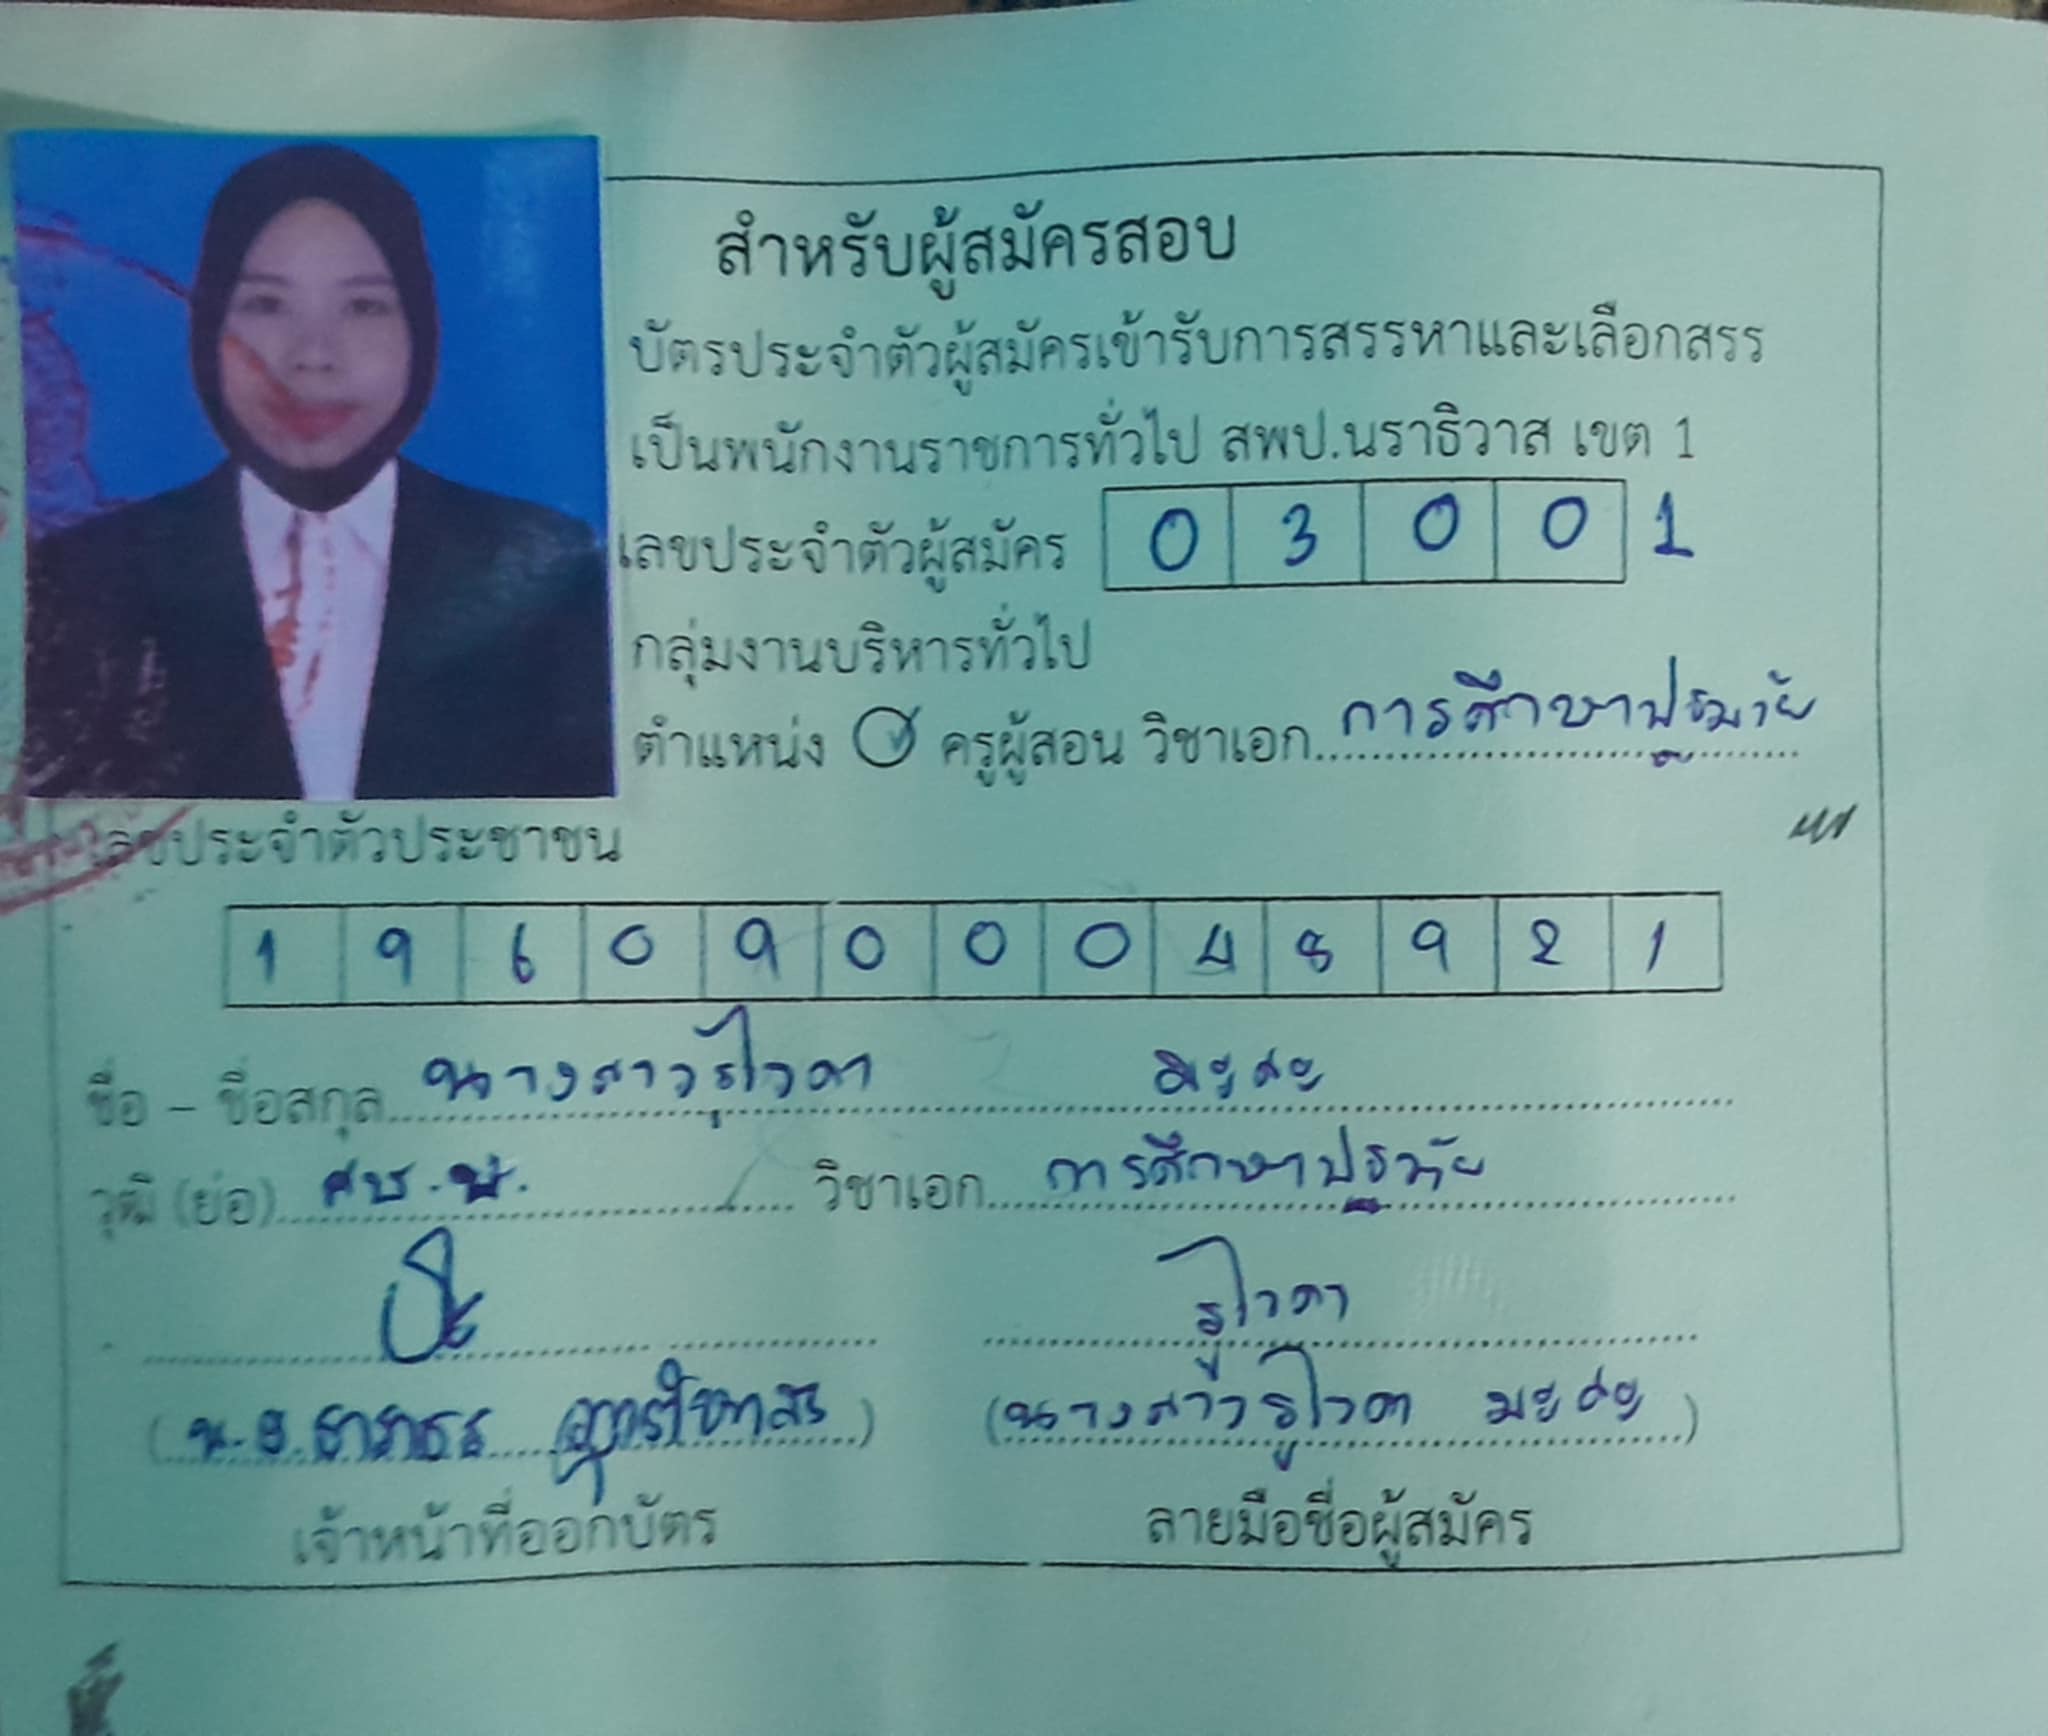 สำหรับผู้สมัครสอบ
บัตรประจำตัวผู้สมัครเข้ารับการสรรหาและเลือกสรร
เป็นพนักงานราชการทั่วไป สพป.นราธิวาส เขต 1
เลขประจำตัวผู้สมัคร 0 3 0 0 1
กลุ่มงานบริหารทั่วไป
ตำแหน่ง ครูผู้สอน วิชาเอก การศึกษาปฐมวัย
เลขประจำตัวประชาชน
1 9 6 0 9 0 0 0 4 8 9 2 1
ชื่อ - ชื่อสกุล นางสาวรูไวดา มะสะ
วุฒิ (ย่อ) ศษ.บ. วิชาเอก การศึกษาปฐมวัย
รูไวดา
(นางสาวรูไวดา มะสะ)
เจ้าหน้าที่ออกบัตร ลายมือชื่อผู้สมัคร